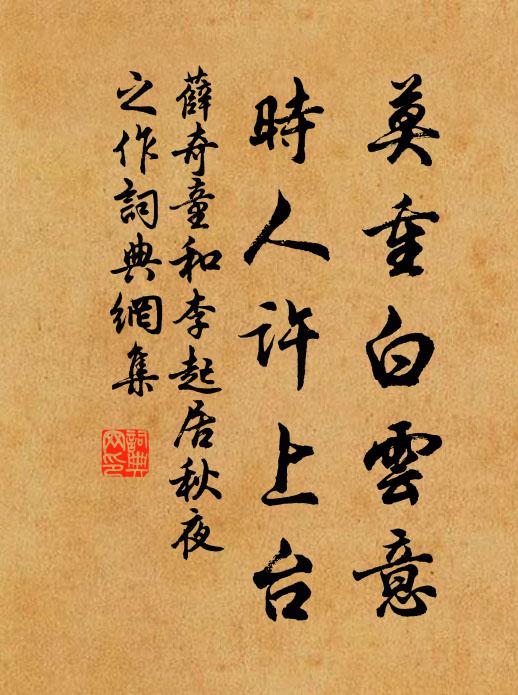 莫重白雲意
時人許上台
薛奇童和李起居秋夜
之作詞典網集
詞典
网印